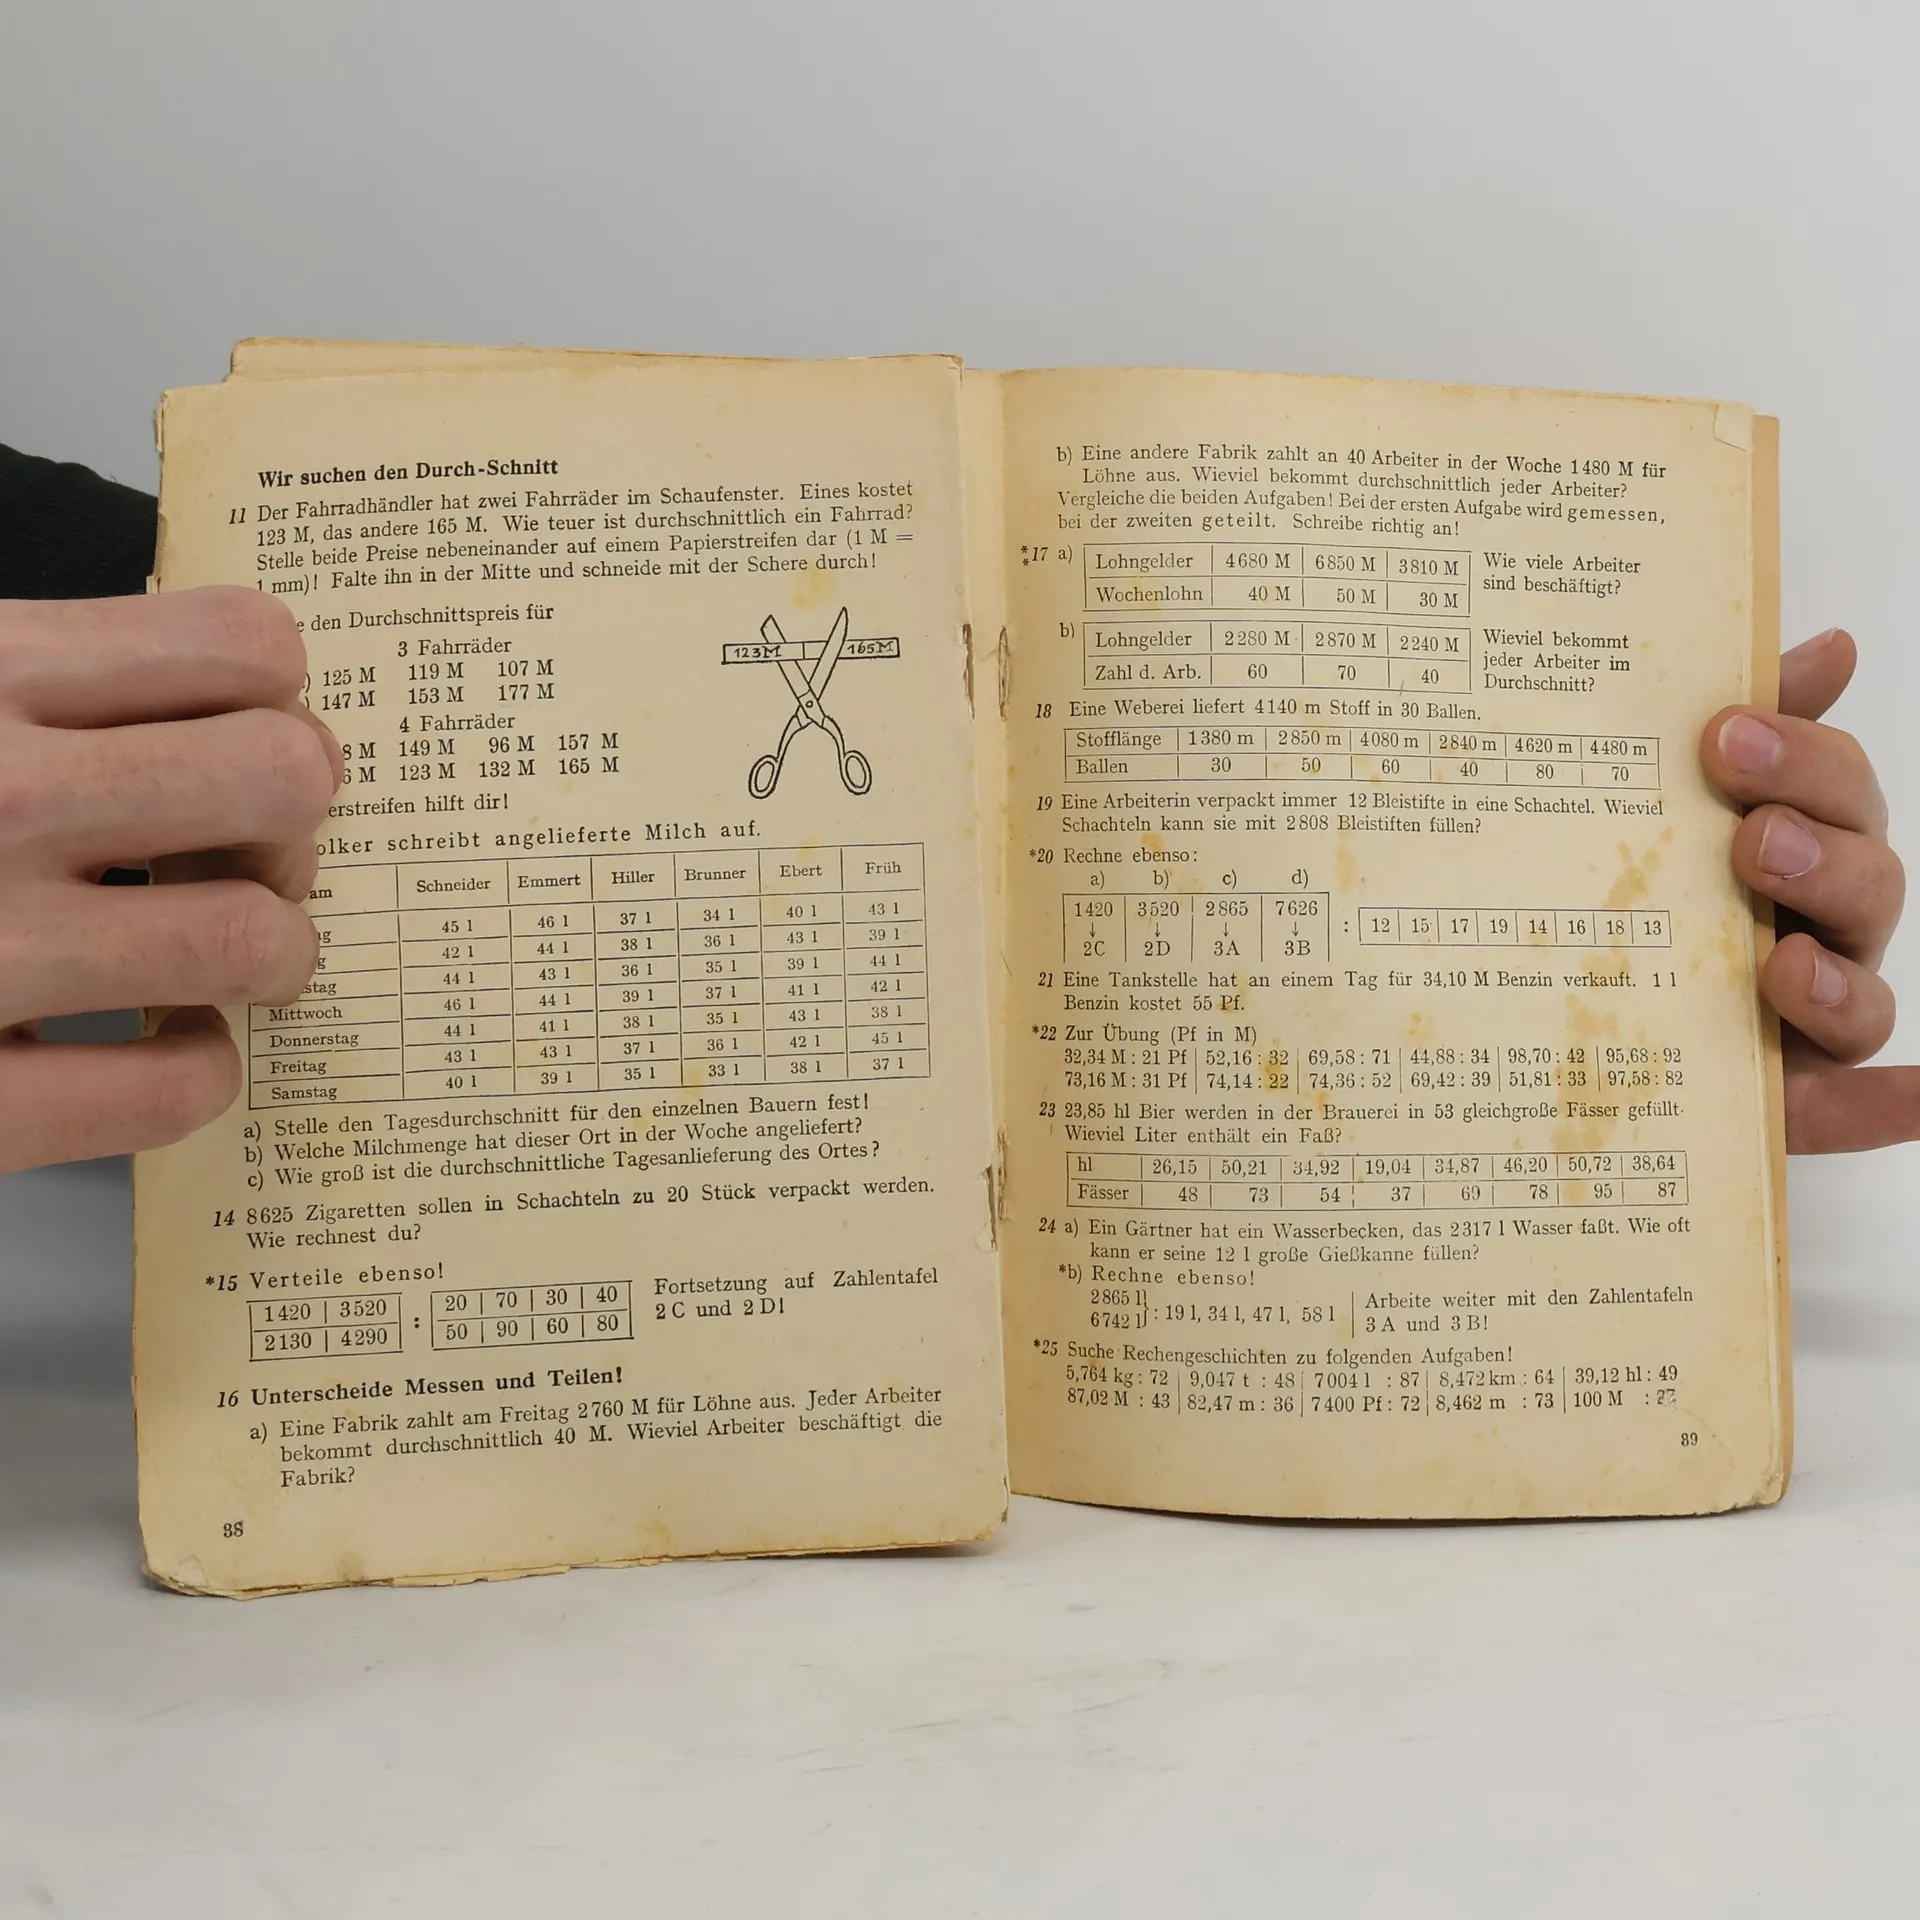 Wir suchen den Durch-Schnitt
11 Der Fahrradhändler hat zwei Fahrräder im Schaufenster. Eines kostet
123 M, das andere 165 M. Wie teuer ist durchschnittlich ein Fahrrad?
Stelle beide Preise nebeneinander auf einem Papierstreifen dar (1 M =
1 mm)! Falte ihn in der Mitte und schneide mit der Schere durch!
den Durchschnittspreis für
3 Fahrräder
125 M 119 M 107 M
147 M 153 M 177 M
4 Fahrräder
8 M 149 M 96 M 157 M
6 M 123 M 132 M 165 M
erstreifen hilft dir!
123M 165M
olker schreibt angelieferte Milch auf.
am Schneider Emmert Hiller Brunner Ebert Früh
g 45 l 46 l 37 l 34 l 40 l 43 l
g 42 l 44 l 38 l 36 l 43 l 39 l
stag 44 l 43 l 36 l 35 l 39 l 44 l
Mittwoch 46 l 44 l 39 l 37 l 41 l 42 l
Donnerstag 44 l 41 l 38 l 35 l 43 l 38 l
Freitag 43 l 43 l 37 l 36 l 42 l 45 l
Samstag 40 l 39 l 35 l 33 l 38 l 37 l
a) Stelle den Tagesdurchschnitt für den einzelnen Bauern fest!
b) Welche Milchmenge hat dieser Ort in der Woche angeliefert?
c) Wie groß ist die durchschnittliche Tagesanlieferung des Ortes?
14 8625 Zigaretten sollen in Schachteln zu 20 Stück verpackt werden.
Wie rechnest du?
*15 Verteile ebenso!
1420 | 3520 : 20 | 70 | 30 | 40
2130 | 4290 50 | 90 | 60 | 80
Fortsetzung auf Zahlentafel
2 C und 2 D!
16 Unterscheide Messen und Teilen!
a) Eine Fabrik zahlt am Freitag 2760 M für Löhne aus. Jeder Arbeiter
bekommt durchschnittlich 40 M. Wieviel Arbeiter beschäftigt die
Fabrik?
38
b) Eine andere Fabrik zahlt an 40 Arbeiter in der Woche 1480 M für
Löhne aus. Wieviel bekommt durchschnittlich jeder Arbeiter?
Vergleiche die beiden Aufgaben! Bei der ersten Aufgabe wird gemessen,
bei der zweiten geteilt. Schreibe richtig an!
**17 a) Lohngelder | 4680 M | 6850 M | 3810 M
Wochenlohn | 40 M | 50 M | 30 M
Wie viele Arbeiter
sind beschäftigt?
b) Lohngelder | 2280 M | 2870 M | 2240 M
Zahl d. Arb. | 60 | 70 | 40
Wieviel bekommt
jeder Arbeiter im
Durchschnitt?
18 Eine Weberei liefert 4140 m Stoff in 30 Ballen.
Stofflänge | 1380 m | 2850 m | 4080 m | 2840 m | 4620 m | 4480 m
Ballen | 30 | 50 | 60 | 40 | 80 | 70
19 Eine Arbeiterin verpackt immer 12 Bleistifte in eine Schachtel. Wieviel
Schachteln kann sie mit 2808 Bleistiften füllen?
*20 Rechne ebenso:
a) b) c) d)
1420 | 3520 | 2865 | 7626
↓ ↓ ↓ ↓ : 12 | 15 | 17 | 19 | 14 | 16 | 18 | 13
2C 2D 3A 3B
21 Eine Tankstelle hat an einem Tag für 34,10 M Benzin verkauft. 1 l
Benzin kostet 55 Pf.
*22 Zur Übung (Pf in M)
32,34 M : 21 Pf | 52,16 : 32 | 69,58 : 71 | 44,88 : 34 | 98,70 : 42 | 95,68 : 92
73,16 M : 31 Pf | 74,14 : 22 | 74,36 : 52 | 69,42 : 39 | 51,81 : 33 | 97,58 : 82
23 23,85 hl Bier werden in der Brauerei in 53 gleichgroße Fässer gefüllt.
Wieviel Liter enthält ein Faß?
hl | 26,15 | 50,21 | 34,92 | 19,04 | 34,87 | 46,20 | 50,72 | 38,64
Fässer | 48 | 73 | 54 | 37 | 69 | 78 | 95 | 87
24 a) Ein Gärtner hat ein Wasserbecken, das 2317 l Wasser faßt. Wie oft
kann er seine 12 l große Gießkanne füllen?
*b) Rechne ebenso!
2865 l
6742 l} : 19 l, 34 l, 47 l, 58 l
Arbeite weiter mit den Zahlentafeln
3 A und 3 B!
*25 Suche Rechengeschichten zu folgenden Aufgaben!
5,764 kg : 72 | 9,047 t : 48 | 7004 l : 87 | 8,472 km : 64 | 39,12 hl : 49
87,02 M : 43 | 82,47 m : 36 | 7400 Pf : 72 | 8,462 m : 73 | 100 M :
39